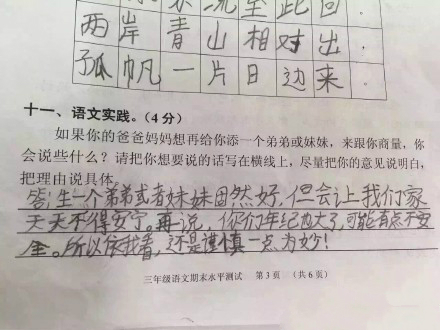 流至此回.
两岸青山相对出.
孤帆一片日边来.
十一、语文实践。(4分)
如果你的爸爸妈妈想再给你添一个弟弟或妹妹，来跟你商量，你
会说些什么？请把你想要说的话写在横线上，尽量把你的意见说明白，
把理由说具体。
答:生一个弟弟或者妹妹固然好,但会让我们家
天天不得安宁。再说，你们年纪也大了,可能有点不安
全。所以依我看，还是谨慎一点为妙！
三年级语文期末水平测试 第3页 （共6页）